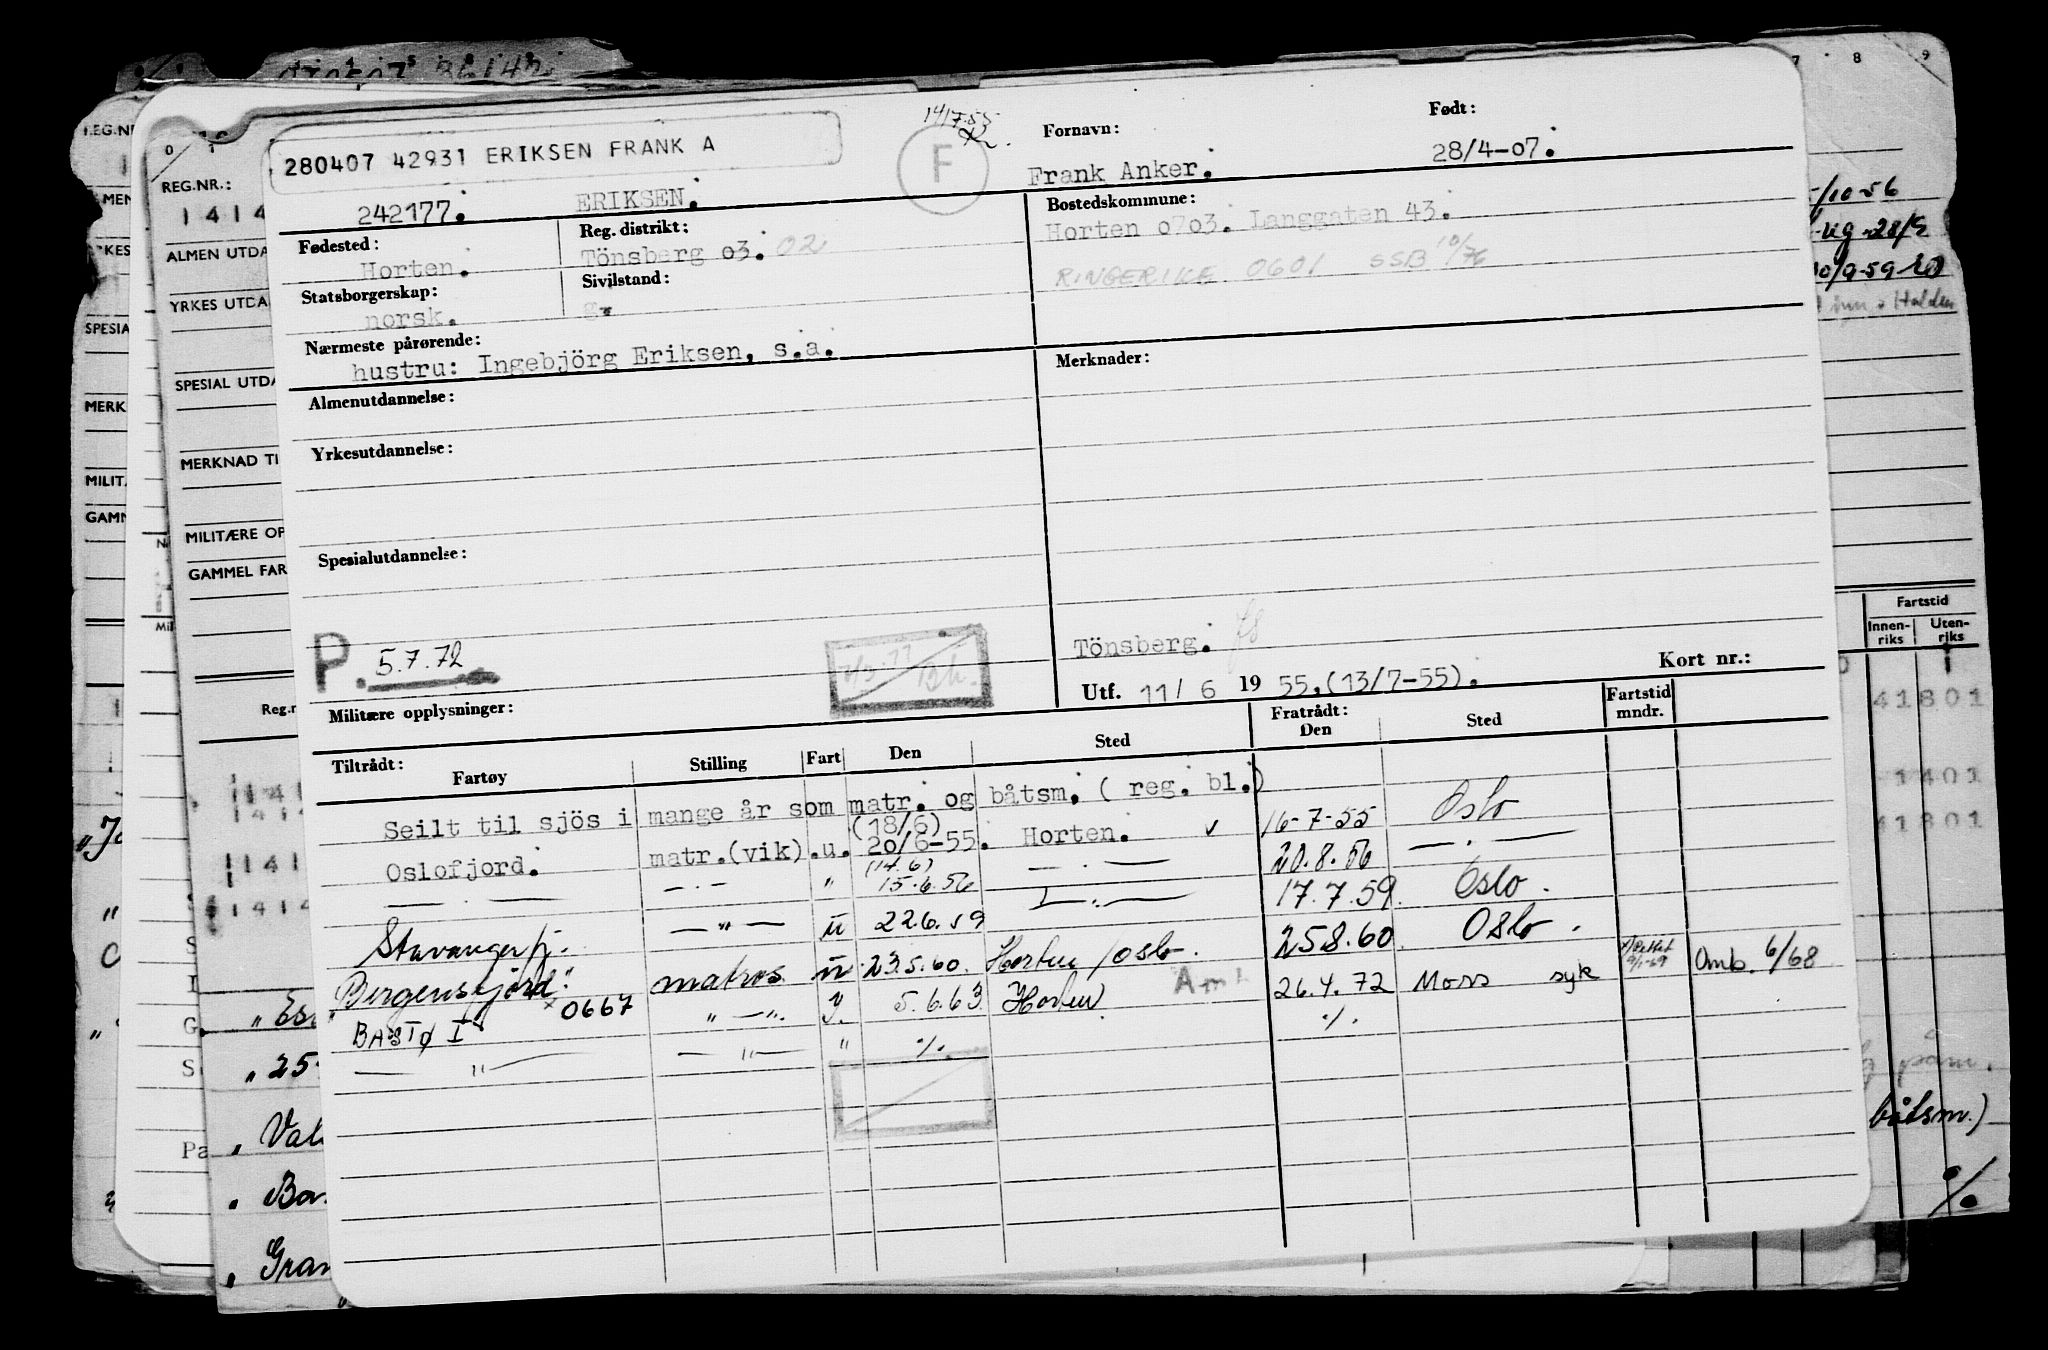 280407 42931 ERIKSEN FRANK A
F
Fornavn:
Født:
242177.
ERIKSEN.
Frank Anker.
28/4-07.
Fødested:
Reg. distrikt:
Bostedskommune:
Horten.
Tönsberg 03. 02
Horten 0703. Langgaten 43.
Statsborgerskap:
Sivilstand:
RINGERIKE 0601 SSB 10/76
norsk.
g.
Nærmeste pårørende:
hustru: Ingebjörg Eriksen, s.a.
Merknader:
Almenutdannelse:
Yrkesutdannelse:
Spesialutdannelse:
P. 5.7.72
Tönsberg.
Utf. 11/6 1955.(13/7-55).
Kort nr.:
Militære opplysninger:
Tiltrådt:
Fartøy
Stilling
Fart
Den
Sted
Fratrådt:
Den
Sted
Fartstid
mndr.
Seilt til sjös i mange år som matr. og båtsm. ( reg. bl.)
(18/6)
Oslofjord. matr.(vik).u. 20/6-55. Horten. 16-7-55 Oslo
(14.6)
— . — — . — " 15.6.56 — . — 20.8.56 — . —
Stavangerfj. — " — u 22.6.59 — " — 17.7.59. Oslo.
"Bergensfjord" matros u 23.5.60. Horten/Oslo 25.8.60. Oslo.
BASTØ I 0667 " — " 5.6.63 Horten 26.4.72 Moss syk Omb. 6/68
— " — — " — " %. %.
REG.NR.:
1414
ALMEN UTDA
YRKES UTDA
SPESIAL UTDA
MERKNAD TI
MILITÆRE OP
GAMMEL FAR
Reg.n
1414
1414
1414
1414
"25
"Gran
MERK
SPESIA
MILIT
GAMN
7 8 9
30/9-59
Fartstid
Innen-
riks
Uten-
riks
41801
1401
41801
båtsm.)
%